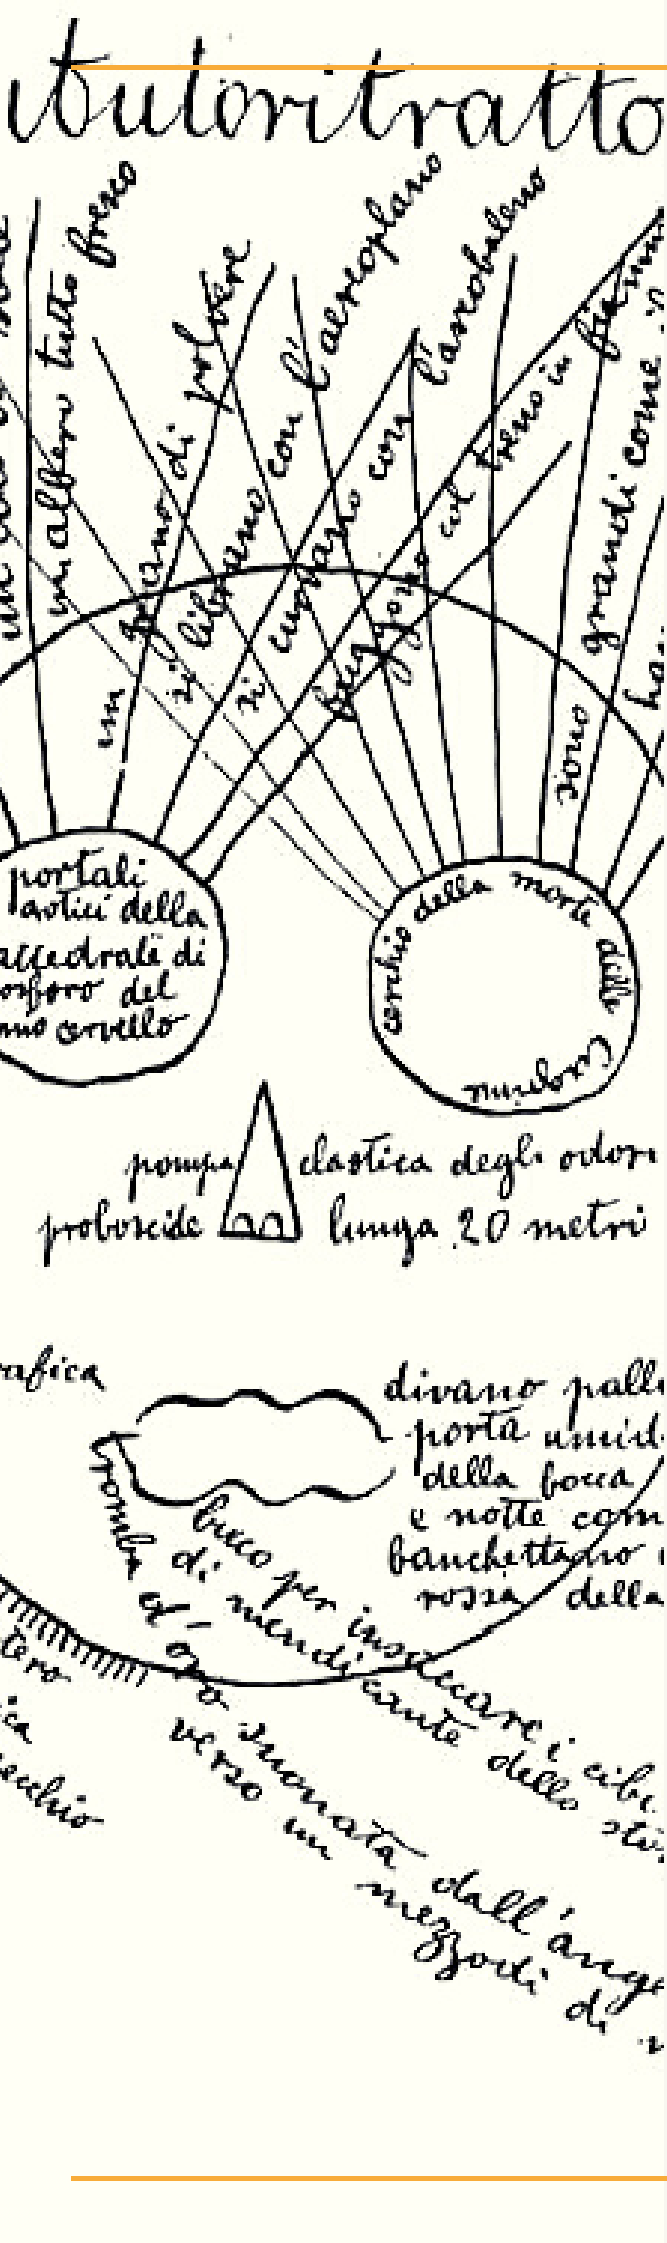 ibuloritratto
un albero tutto fresco
un grano di polvere
si librano con l'aereoplano
si curvano con l'arcobaleno
fuggono col treno in
sono grandi come
portali
aotici della
attedrale di
osforo del
mio cervello
cerchio della morte delle
pompa elastica degli odori
proboscide lunga 20 metri
rafica
divano
porta
della bocca
e notte com
banchettano
rossa della
buco per insaccare i cibi
di mendicante dello
tromba d'oro suonata dall'ange
verso un mezzodì di
tero
ica
ecchio